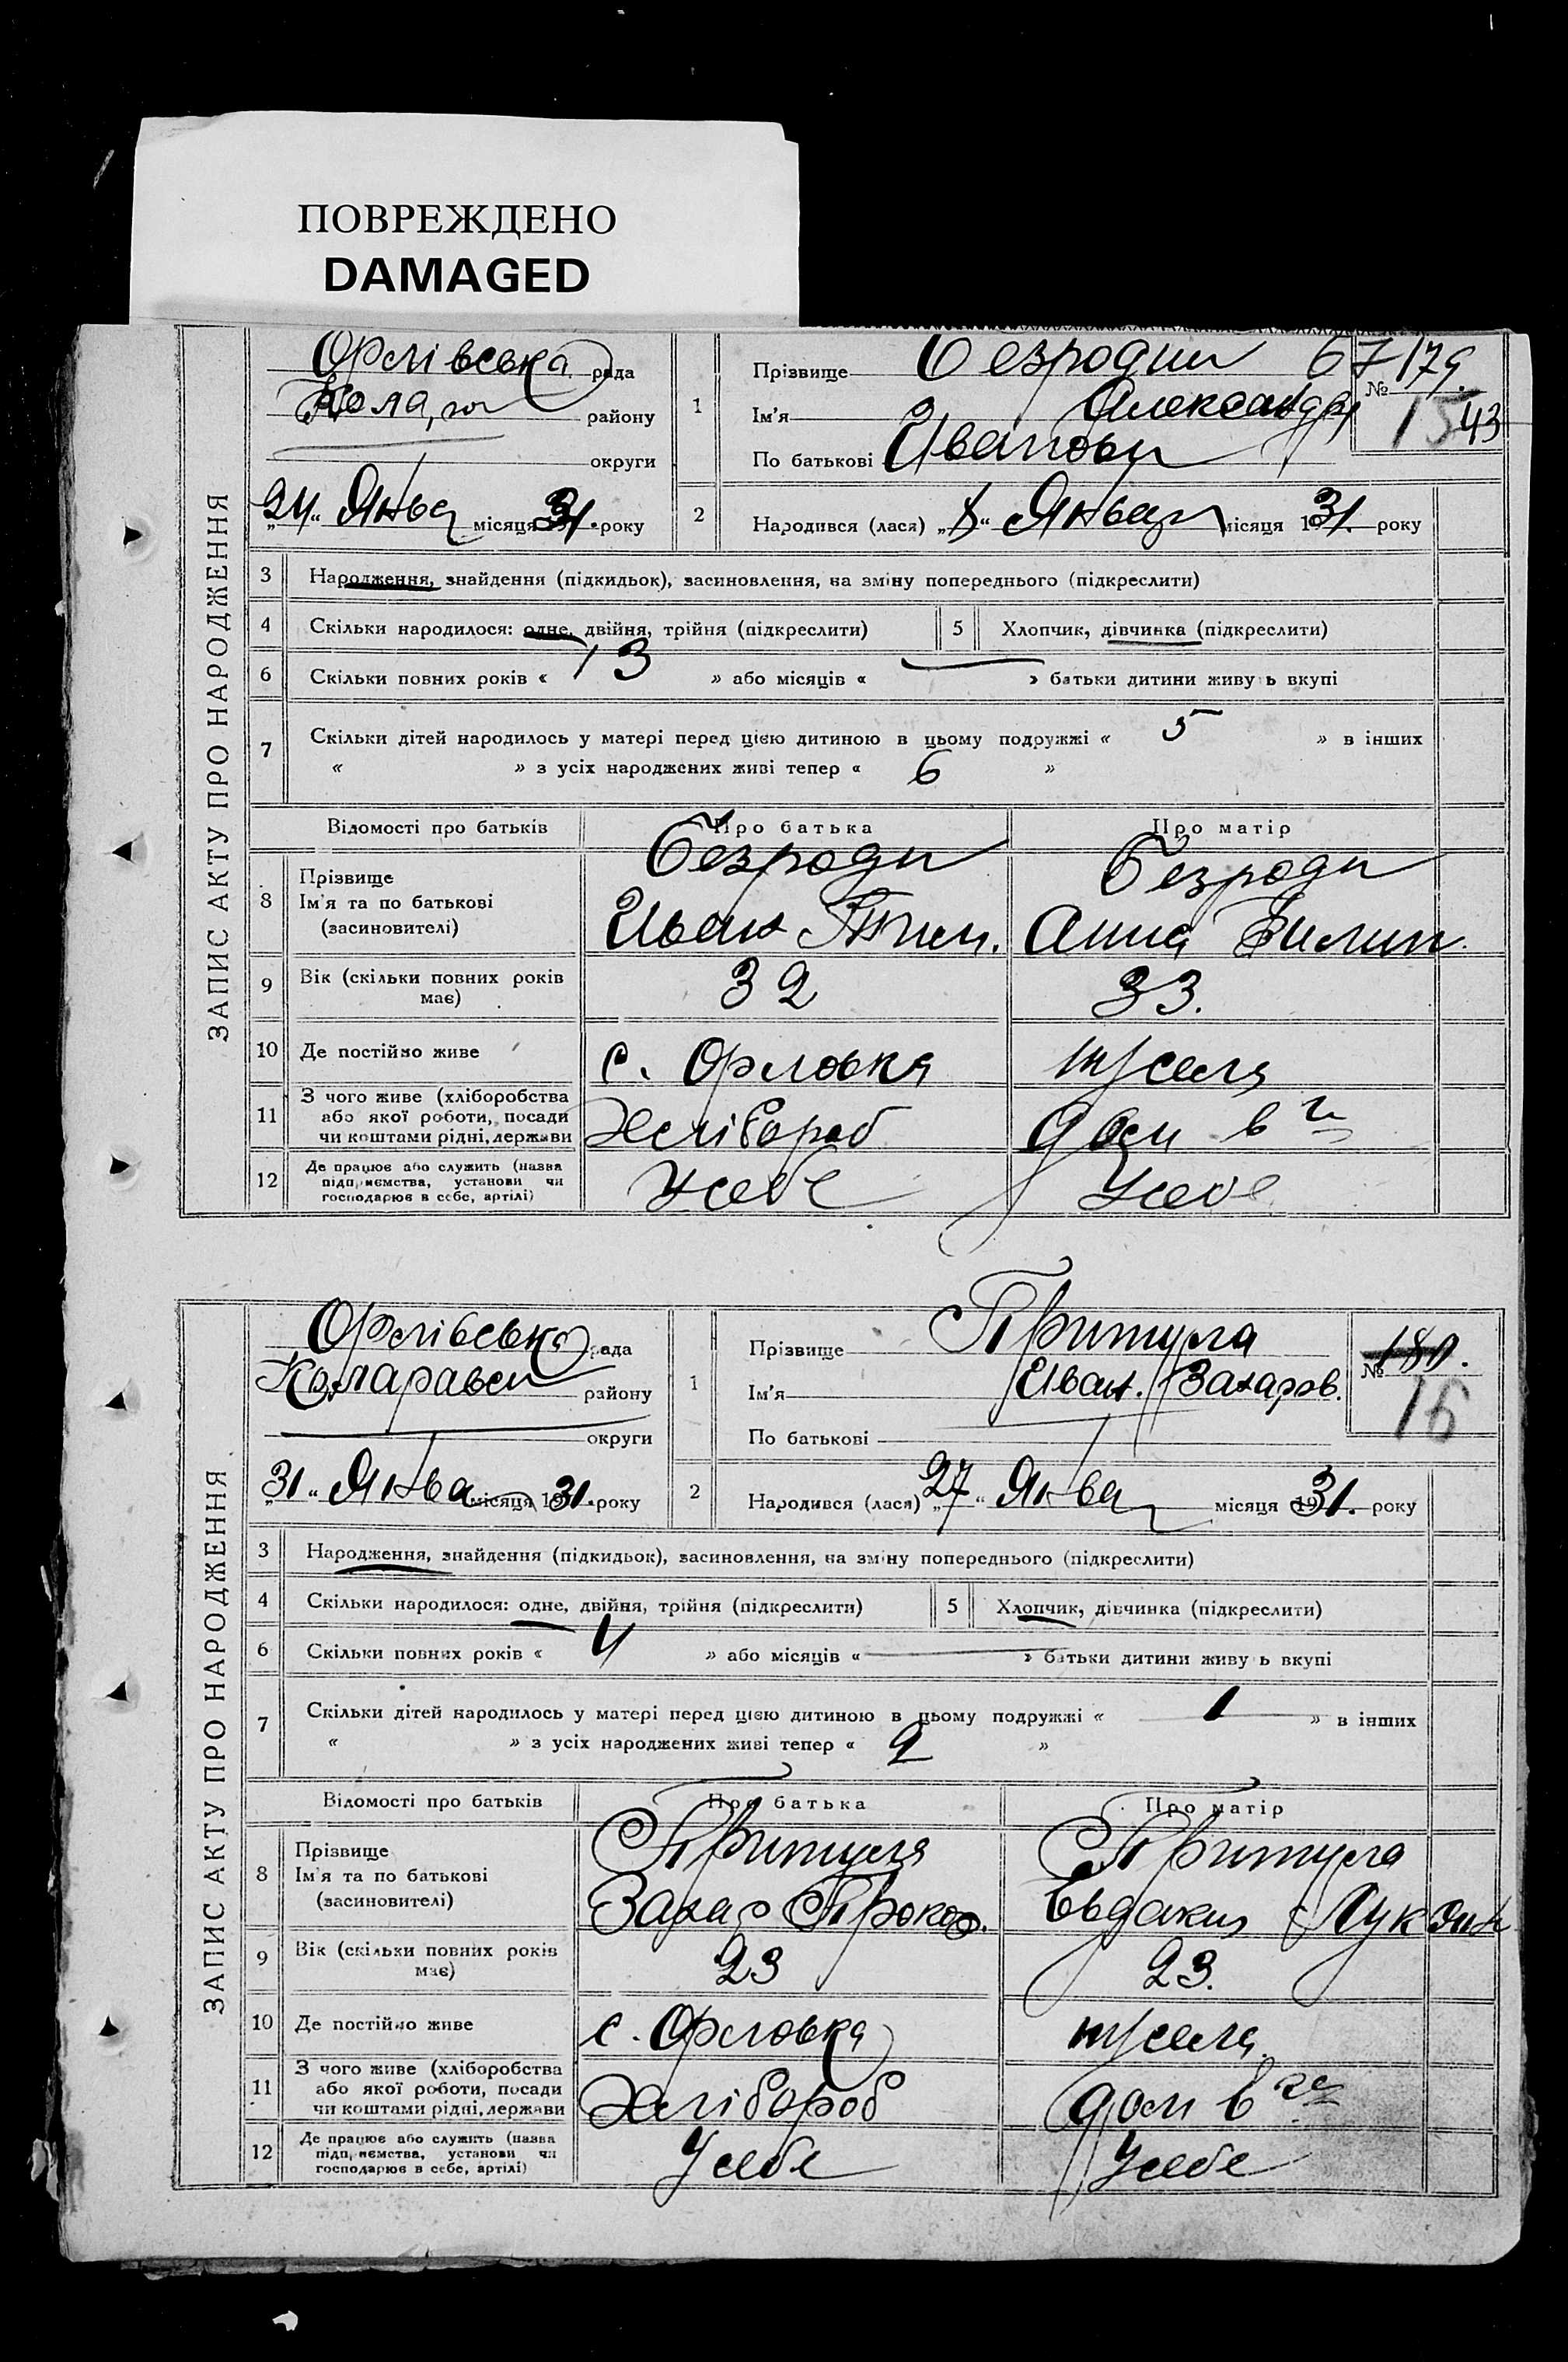 ПОВРЕЖДЕНО
DAMAGED
ЗАПИС АКТУ ПРО НАРОДЖЕННЯ
Орлівська рада
району
округи
24 Янва місяця 31. року
1
Прізвище Безродни 67 № 179.
Ім'я Александр 15 43
По батькові
2
Народився (лася) „ “ Январ місяця 1931. року
3 Народження, знайдення (підкидьок), засиновлення, на зміну попереднього (підкреслити)
4 Скільки народилося: одне, двійня, трійня (підкреслити) 5 Хлопчик, дівчинка (підкреслити)
6 Скільки повних років « 13 » або місяців « — » батьки дитини живуть вкупі
7 Скільки дітей народилось у матері перед цією дитиною в цьому подружжі « 5 » в інших
« » з усіх народжених живі тепер « 6 »
Відомості про батьків Про батька Про матір
8 Прізвище Безродн Безродн
Ім'я та по батькові Иван Анна
(засиновителі)
9 Вік (скільки повних років має) 32 33.
10 Де постійно живе с. Орловка
11 З чого живе (хліборобства
або якої роботи, посади Хлібороб дом в
чи коштами рідні, держави
12 Де працює або служить (назва
підприємства, установи чи У себе У себе
господарює в себе, артілі)
ЗАПИС АКТУ ПРО НАРОДЖЕННЯ
Орлівська рада
Коларавсь району
округи
31 Янва місяця 1931. року
1
Прізвище Притула № 180.
Ім'я Иван. Захаров. 16
По батькові
2
Народився (лася) „27“ Янва місяця 1931. року
3 Народження, знайдення (підкидьок), засиновлення, на зміну попереднього (підкреслити)
4 Скільки народилося: одне, двійня, трійня (підкреслити) 5 Хлопчик, дівчинка (підкреслити)
6 Скільки повних років « 4 » або місяців « — » батьки дитини живуть вкупі
7 Скільки дітей народилось у матері перед цією дитиною в цьому подружжі « 1 » в інших
« » з усіх народжених живі тепер « 2 »
Відомості про батьків Про батька Про матір
8 Прізвище Притула Притула
Ім'я та по батькові Захар Прокоф. Евдакия
(засиновителі)
9 Вік (скільки повних років має) 23 23.
10 Де постійно живе с. Орловка
11 З чого живе (хліборобства
або якої роботи, посади Хлібороб дом в
чи коштами рідні, держави
12 Де працює або служить (назва
підприємства, установи чи У себе У себе
господарює в себе, артілі)